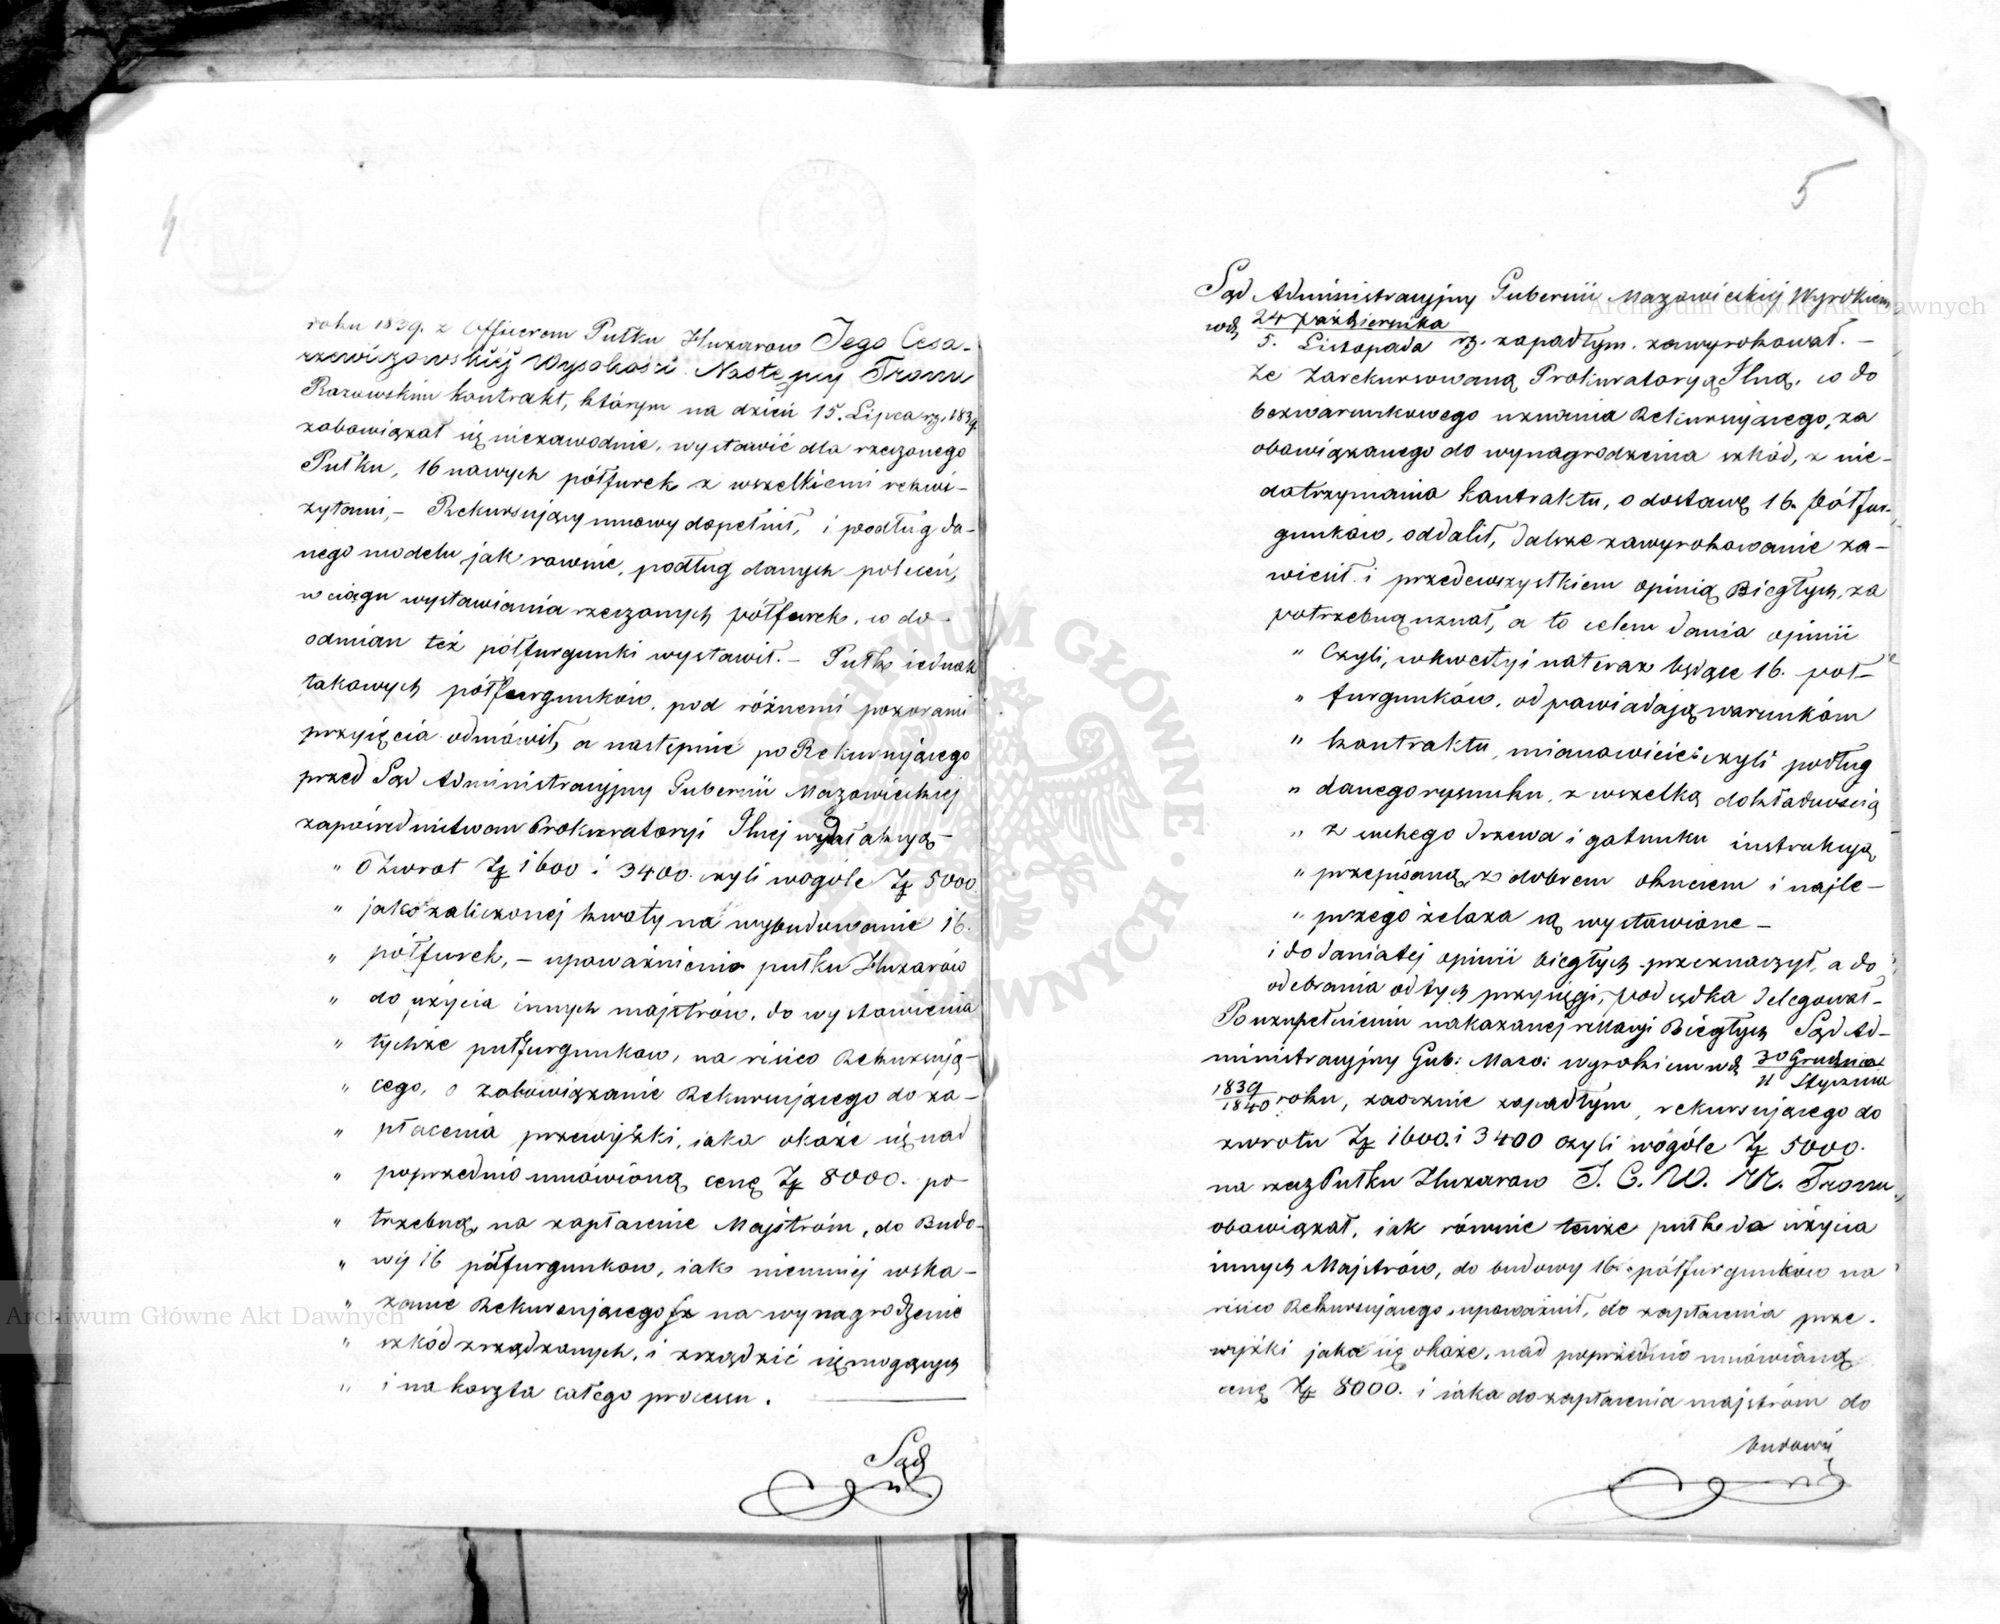 4
roku 1839. z Officerem Pułku Huzarow Jego Cesa-
rzewiczowskiej Wysokości Następcy Tronu
Razowskim kontrakt, którym na dzień 15. Lipca rz. 1839.
zobowiązał się niezawodnie, wystawić dla rzeczonego
Pułku, 16 nowych półfurek z wszelkiemi rekwi-
zytami, – Rekursujący umowy dopełnił, i podług da-
nego modelu jak rownie, podług danych poleceń,
w ciągu wystawiania rzeczonych półfurek, co do
odmian też półfurgunki wystawił. – Pułk iednak
takowych półfurgunków, pod różnemi pozorami
przyięcia odmówił, a następnie po Rekursujacego
przed Sąd Administracyjny Gubernii Mazowieckiej
zapośrednictwem Prokuratoryi Jlnej wydał akcyą –
" O zwrot Zł 1600 i 3400. czyli wogóle Zł 5000
" jako zaliczonej kwoty na wybudowanie 16.
" półfurek, – upoważnienie pułku Huzarów
" do użycia innych majstrów, do wystawienia
" tychże pułfurgunkow, na risico Rekursują-
" cego, o zobowiązanie Rekursującego do za-
" płacenia przewyżki, iaka okaże się nad
" poprzednio umówioną cenę Zł 8000. po-
" trzebną na zapłacenie Majstrom, do Budo-
" wy 16 półfurgunkow, iako niemniej wska-
" zanie Rekursujacego na wynagrodzenie
" szkód zrządzonych, i zrządzić się mogących
" i na koszta całego processu.
Sąd
5
Sąd Administracyjny Gubernii Mazowieckiej Wyrokiem
wd. 24 Października
5. Listopada rz. zapadłym. zawyrokował. –
że Zarekursowaną Prokuratoryą Jlną, co do
bezwarunkowego uznania Rekursujacego, za
obowiązanego do wynagrodzenia szkód, z nie-
dotrzymania kontraktu, o dostawę 16. Półfur-
gunków, oddalił, dalsze zawyrokowanie za-
wiesił i przedewszystkiem opinią Biegłych, za
potrzebną uznał, a to celem dania opinii
" Czyli, w kwestyi nateraz będące 16. pół-
" furgunków, odpawiadają warunkóm
" kontraktu, mianowicie: czyli podług
" danego rysunku, z wszelką dokładnością
" z suchego drzewa i gatunku instrukcyą
" przepisaną, z dobrem okuciem i najle-
" pszego żelaza są wystawione –
i do daniatej opinii biegłych przeznaczył, a do
odebrania od tych przysięgi, Podsędka delegował –
Po uzupełnieniu nakazanej rellacyi Biegłych Sąd Ad-
ministracyjny Gub: Mazo: wyrokiem wd. 30 Grudnia
11 Stycznia
1839
1840 roku, zaocznie zapadłym, rekursujacego do
zwrotu Zł 1600. i 3400 czyli wogóle Zł 5000.
na rzecz Pułku Huzarow J. C. W. N. Tronu,
obowiązał, iak równie tenże pułk do użycia
innych Majstrów, do budowy 16. półfurgunków na
risico Rekursujacego upoważnił, do zapłacenia prze-
wyżki jaka się okaże, nad poprzednio umówioną
cenę Zł 8000. i iaka do zapłacenia majstróm do
budowy
Archiwum Główne Akt Dawnych
Archiwum Główne Akt Dawnych
ARCHIWUM GŁÓWNE AKT DAWNYCH